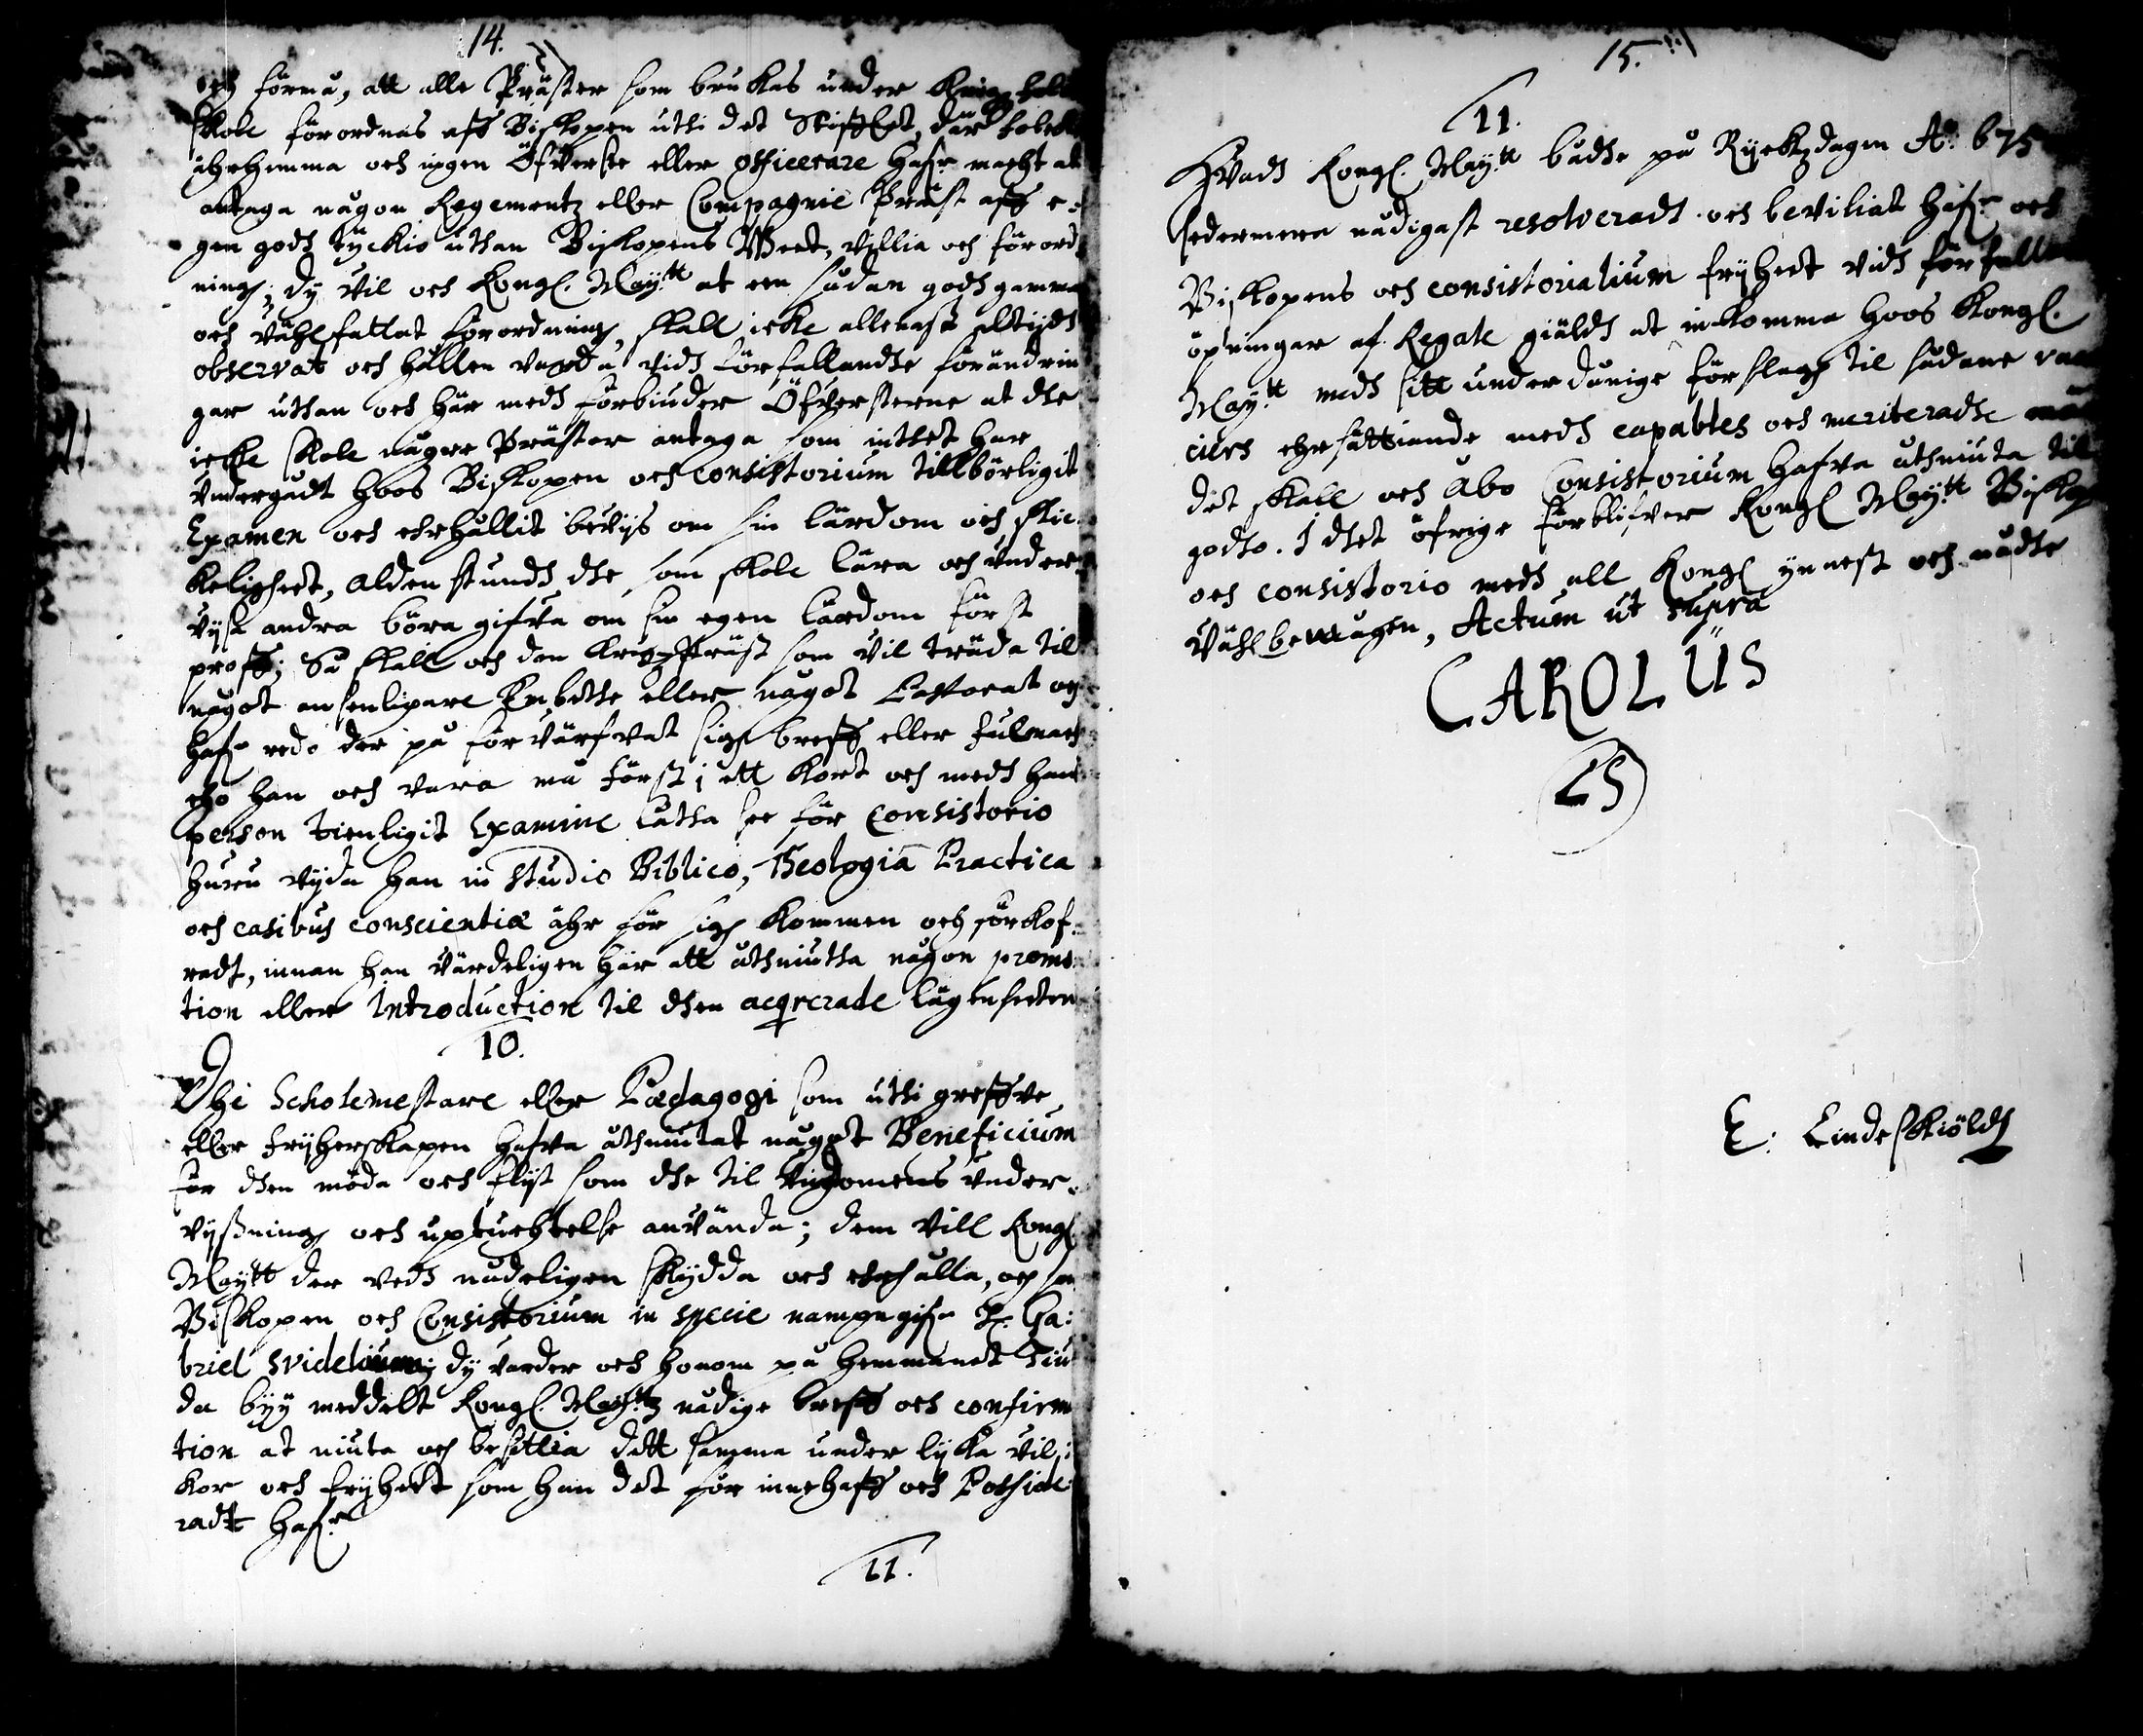 14.
och förmå, att alle Präster som brukas under Krigzfolk
skole förordnas aff Biskopen uthi det Stifftet, där folcket
ähr hemma och ingen Öfverste eller officerare hafr macht at
antaga någon Regementz eller Compagnie Präst aff e-
gen godh tyckio uthan Biskopens Wett, villia och förord-
ningh; dy vil och Kongl. Maÿtt at een sådan godh gammal
och Vählfattat förordningh, skall icke allenast altijdh
observat och hållen varda vidh förfallandhe förändrin
gar uthan och här medh förbiuder Öfversterne at dhe
icke skole någre Präster antaga som inthet har
Undergådt hoos Biskopen och Consistorium tillbörligit
Examen och ehrhållit bevijs om sin lärdom och skic-
keligheet, Aldenstundh dhe som skole lära och under-
vijsa andra böra gifva om sin egen lärdom först
proff; Så skall och den KrigzPräst som vil träda til
något ansenligare Embethe eller något Pastorat och
hafr redo der på förvärfvat sigh breff eller fulmacht
eho han och vara må först i ett kort och medh hans
person tienligit Examine låtha see för Consistorio
huru vijda han in studio Biblico, Theologia Practica
och casibus conscientiæ ähr för sigh kommen och förkof-
radt, innan han värdeligen här att åthniutha någon promo-
tion eller Introduction til dhen acqrerade lägenheeten
10.
Dhe Scholemestare eller Pædagogi som uthi greffve
eller frijherskapen hafva åthniutat något Beneficium
för dhen möda och flijt som dhe til Ungdomens under-
vijßningh och uptuchtelse använda; dem vill Kongl
Maÿtt der vedh nådeligen skydda och ehrhålla, och som
Biskopen och Consistorium in specie nampngifr H. Ga-
briel dy varder och honom på hemmanet Tiu
da byy meddelt Kongl. Maÿttz nådige breff och confirma
tion at niuta och besittia dett samma under lijka vil-
kor och frijheet som han det för innehafft och Posside-
radt hafr
11.
15.
11.
Hvadh Kongl. Maÿtt bådhe på Rijckzdagen Ao 675
sedermera nådigast resolveradt och beviliat hafr och
Biskopens och consistorialium frijheet vidh förfallande
öpningar af Regale giäldh at inkomma hoos Kongl.
Maÿtt medh sitt underdånige förslagh til sådane vacan
ciers ehrsättiande medh capables och meriteradhe män
det skall och Åbo Consistorium hafva åthniuta til
godho. I dhet öfrige förblifver Kongl Maÿtt Biskopen
och consistorio medh all Kongl ynnest och nådhe
Vähl bewågen, Actum ut supra
CAROLUS
LS
E: Lindeskiöldh